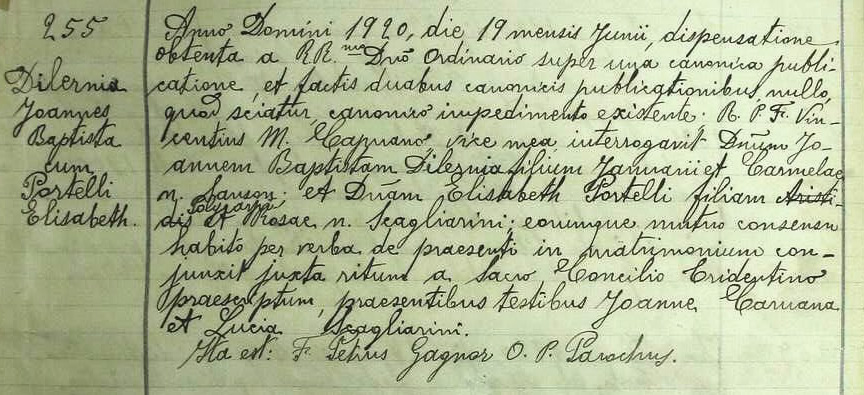 255
Dilernia
Joannes
Baptista
cum
Portelli
Elisabeth.
Anno Domini 1920, die 19 mensis Junii, dispensatione
obtenta a RR.mo Dnō Ordinario super una canonica publi-
catione, et factis duabus canonicis publicationibus nullo,
quod sciatur, canonico impedimento existente: R. P. F. Vin-
centius M. Capuano, vice mea, interrogavit Dn̄um Jo-
annem Baptistam Dilernia filium Januarii et Carmelae
n. Sanson; et Dn̄am Elisabeth Portelli filiam Aristi-
dis et Rosae n. Scagliarini; eorumque mutuo consensu
habito per verba de praesenti in matrimonium con-
junxit juxta ritum a Sacro Concilio Tridentino
praescriptum, praesentibus testibus Joanne Caruana
et Lucia Scagliarini.
Ita est: F. Petrus Gagnor O. P. Parochus.